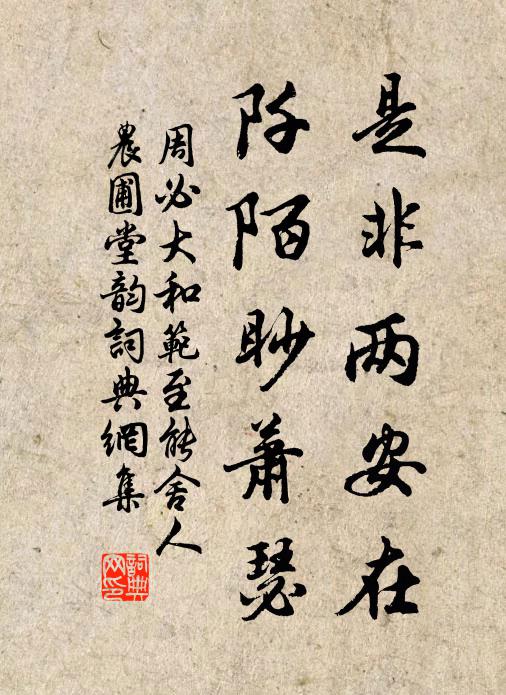 是非两安在
阡陌眇萧瑟
周必大和範至能舍人
農圃堂韵詞典網集
詞典
网印